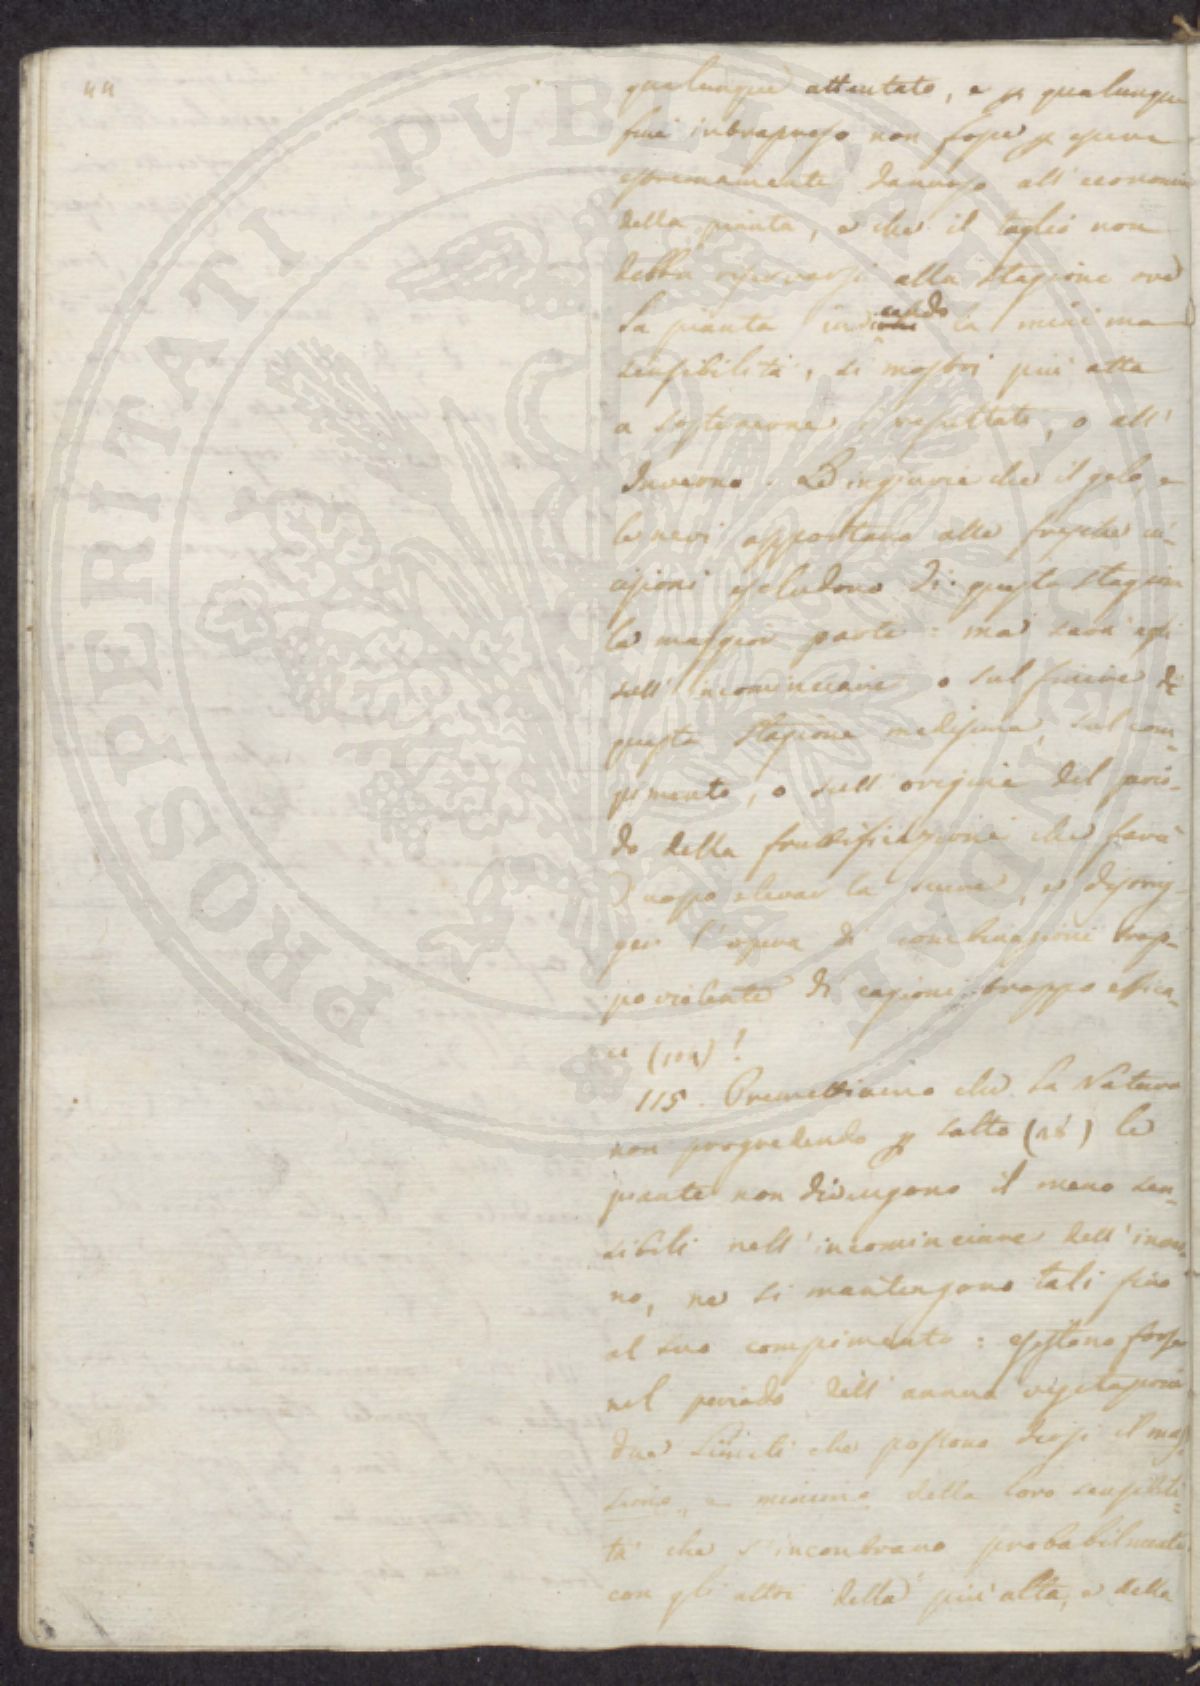 44
qualunque attentato, e p qualunque
fine intrapreso non fosse p essere
estremamente dannoso all'economia
della pianta, e che il taglio non
debba riservarsi alla stagione ove
la pianta indicando la minima
sensibilità, si mostri più atta
a sostenerne i resultati, o all'
Inverno. Le ingiurie che il gelo, e
le nevi apportano alle fresche in-
cisioni escludono di questa stagione
la maggior parte: ma sarà egli
sull'incominciare o sul finire di
questa stagione medesima, sul com-
pimento, o sull'origine del perio-
do della fruttificazione che farà
d'uopo elevar la scure, e
l'opera di combinazioni trop-
po violente di cagioni troppo effica-
ci (104)!
115. Premettiamo che la Natura
non progredendo p salto (28) le
piante non divengono il meno sen-
sibili nell'incominciare dell'inver-
no, ne si mantengono tali fino
al suo compimento: esistono forse
nel periodo dell'annua vegetazione
due limiti che possono dirsi il mas-
simo, e minimo della loro sensibili-
tà che s'incontrano probabilmente
con gli altri della più alta, e della
PROSPERITATI PVBLICAE AVGENDAE